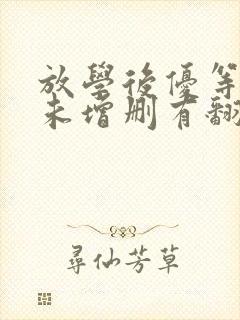 放學後優等
未增刪有翻
尋仙芳草